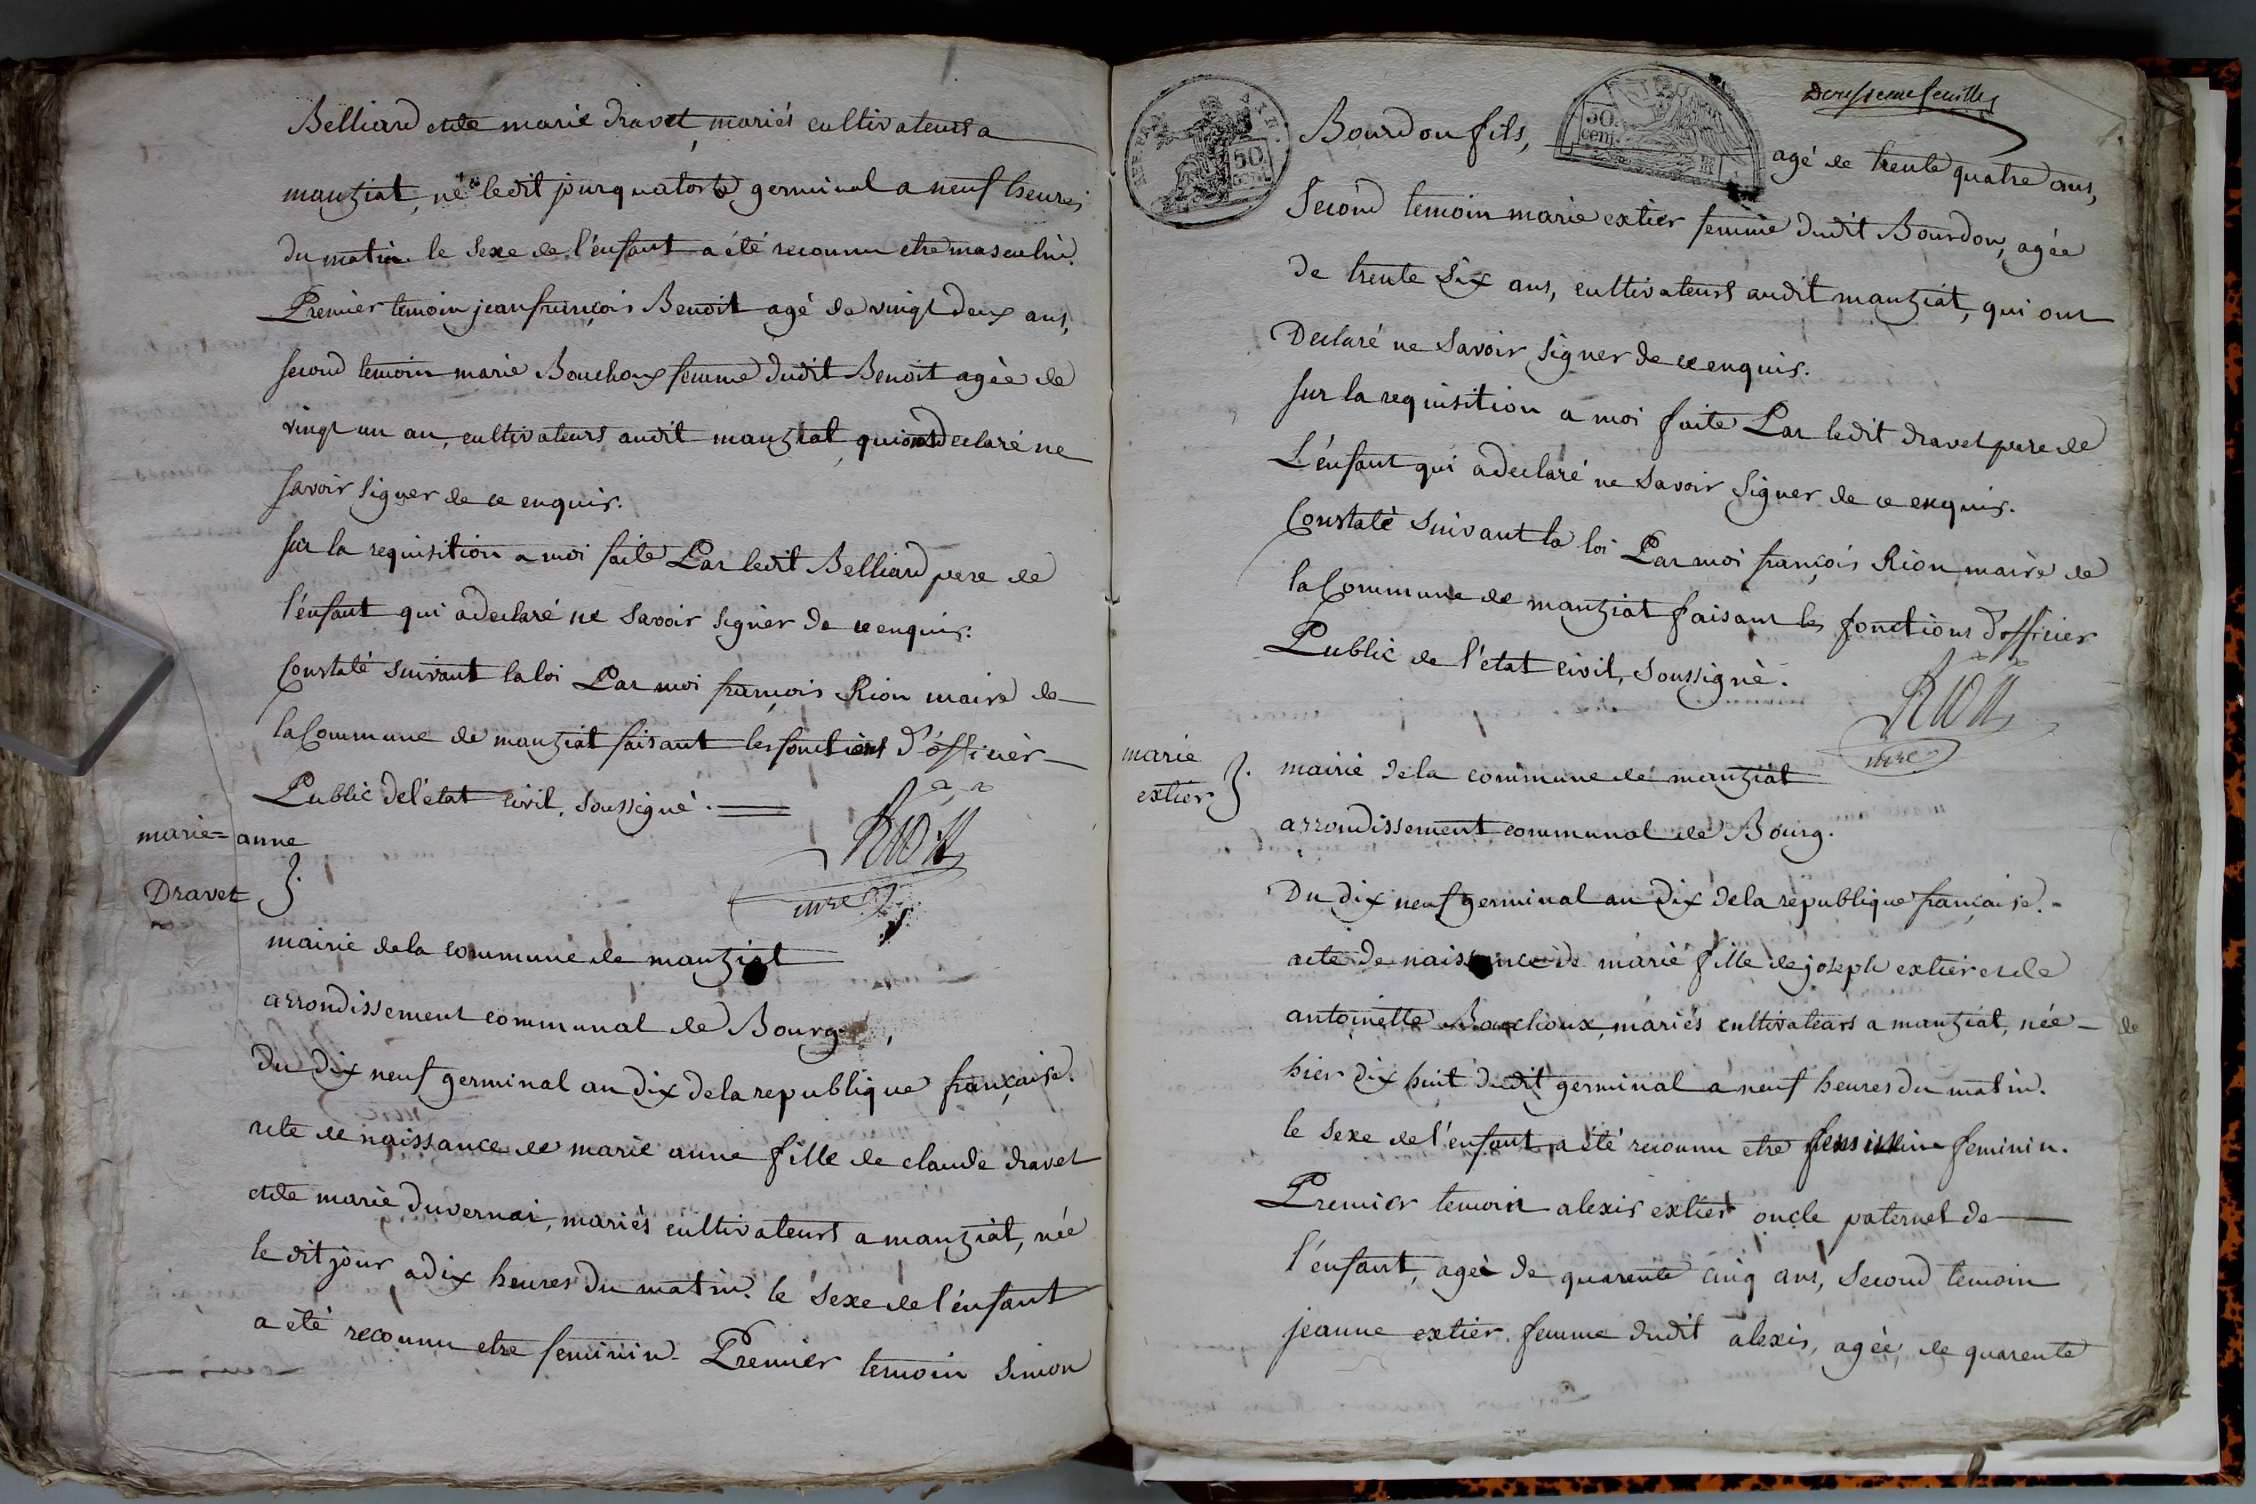 Belliard et de marie dravet, mariés cultivateurs a
manziat, né ledit jour quatorze germinal a neuf heures
du matin. le sexe de l'énfant a été reconnu etre masculin.
Premier temoin jean françois Benoit agé de vingt deux ans,
second temoin marie Bouchoux femme dudit Benoit agée de
vingt un an, cultivateurs audit manziat, qui ont declaré ne
savoir signer de ce enquis.
sur la requisition a moi faite Par ledit Belliard pere de
l'énfant qui a declaré ne savoir signer de ce enquis.
Constaté suivant la loi Par moi françois Rion maire de
la Commune de manziat faisant les fonctions d'officier
Public de l'état civil, soussigné.
Rion
mre
marie=anne
Dravet
mairie de la commune de manziat
arrondissement communal de Bourg.
du dix neuf germinal an dix de la republique française.
acte de naissance de marie anne fille de claude dravet
et de marie duvernai, mariés cultivateurs a manziat, née
le dit jour a dix heures du matin. le sexe de l'énfant
a été reconnu etre feminin. Premier temoin Simon
50
REP. FRA
50.
cent.
feuille
Bourdon fils, agé de trente quatre ans,
Second temoin marie extier femme dudit Bourdon, agée
de trente six ans, cultivateurs audit manziat, qui ont
Declaré ne savoir signer de ce enquis.
sur la requisition a moi faite Par ledit dravet pere de
L'énfant qui a declaré ne savoir signer de ce enquis.
Constaté suivant la loi Par moi françois Rion maire de
la Commune de manziat faisant les fonctions d'officier
Public de l'état civil, soussigné.
Rion
mre
marie
extier
mairie de la commune de manziat
arrondissement communal de Bourg.
Du dix neuf germinal an dix de la republique française.
acte de naissance de marie fille de joseph extier et de
antoinette Bouchoux, mariés cultivateurs a manziat, née
hier dix huit dudit germinal a neuf heures du matin.
le sexe de l'énfant a été reconnu etre feminin.
Premier temoin alexis extier oncle paternel de
l'énfant, agé de quarente cinq ans, second temoin
jeanne extier femme dudit alexis, agée de quarente